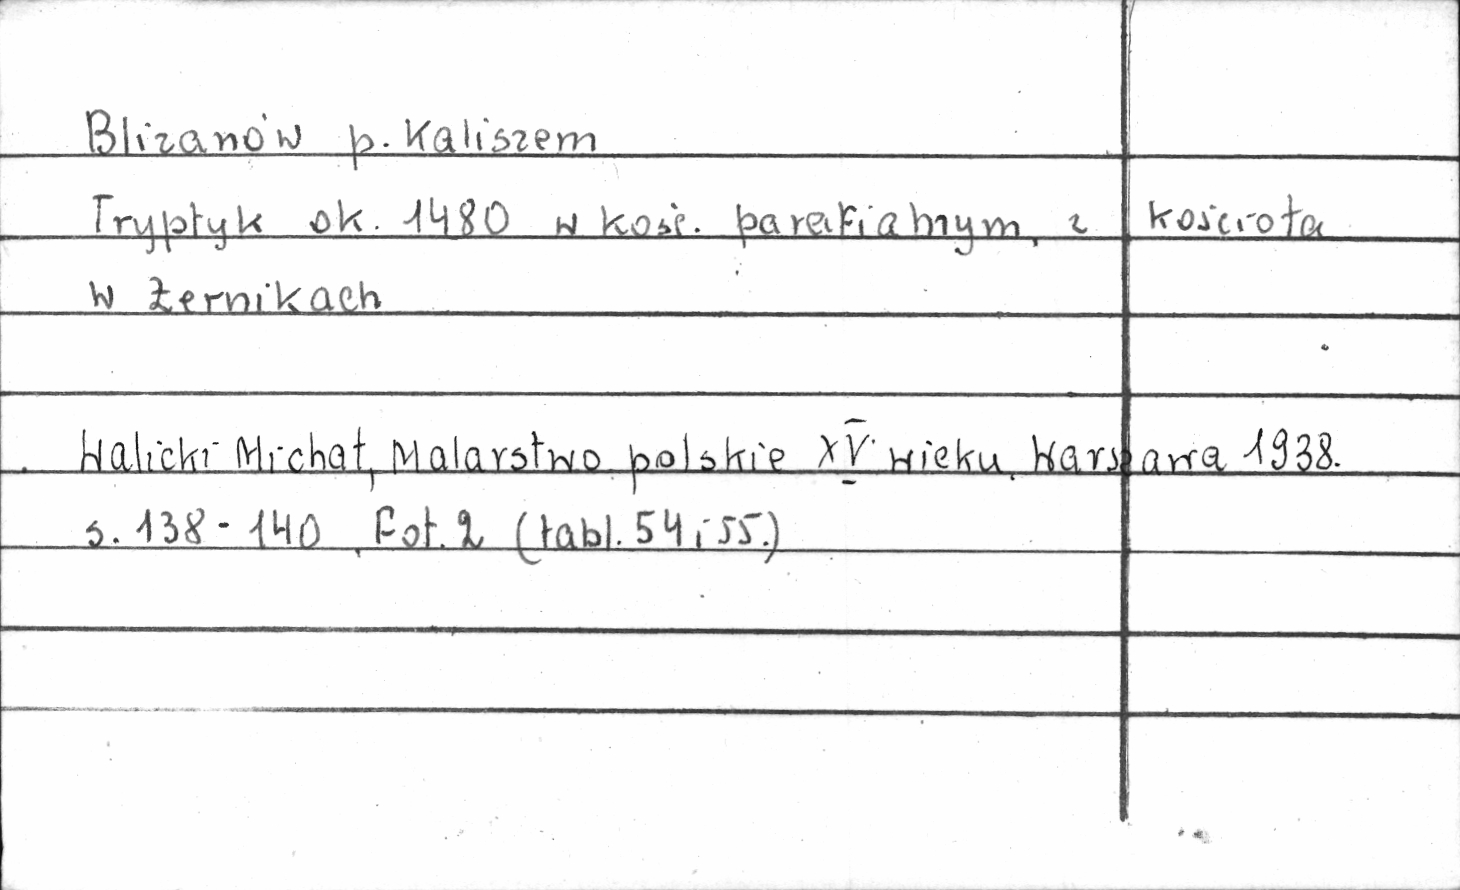 Blizanów p. Kaliszem
Tryptyk ok. 1480 w kość. parafialnym, z kościoła
w Żernikach
Walicki Michał, Malarstwo polskie XV wieku. Warszawa 1938.
s. 138-140, Fot. 2 (tabl. 54 i 55.)